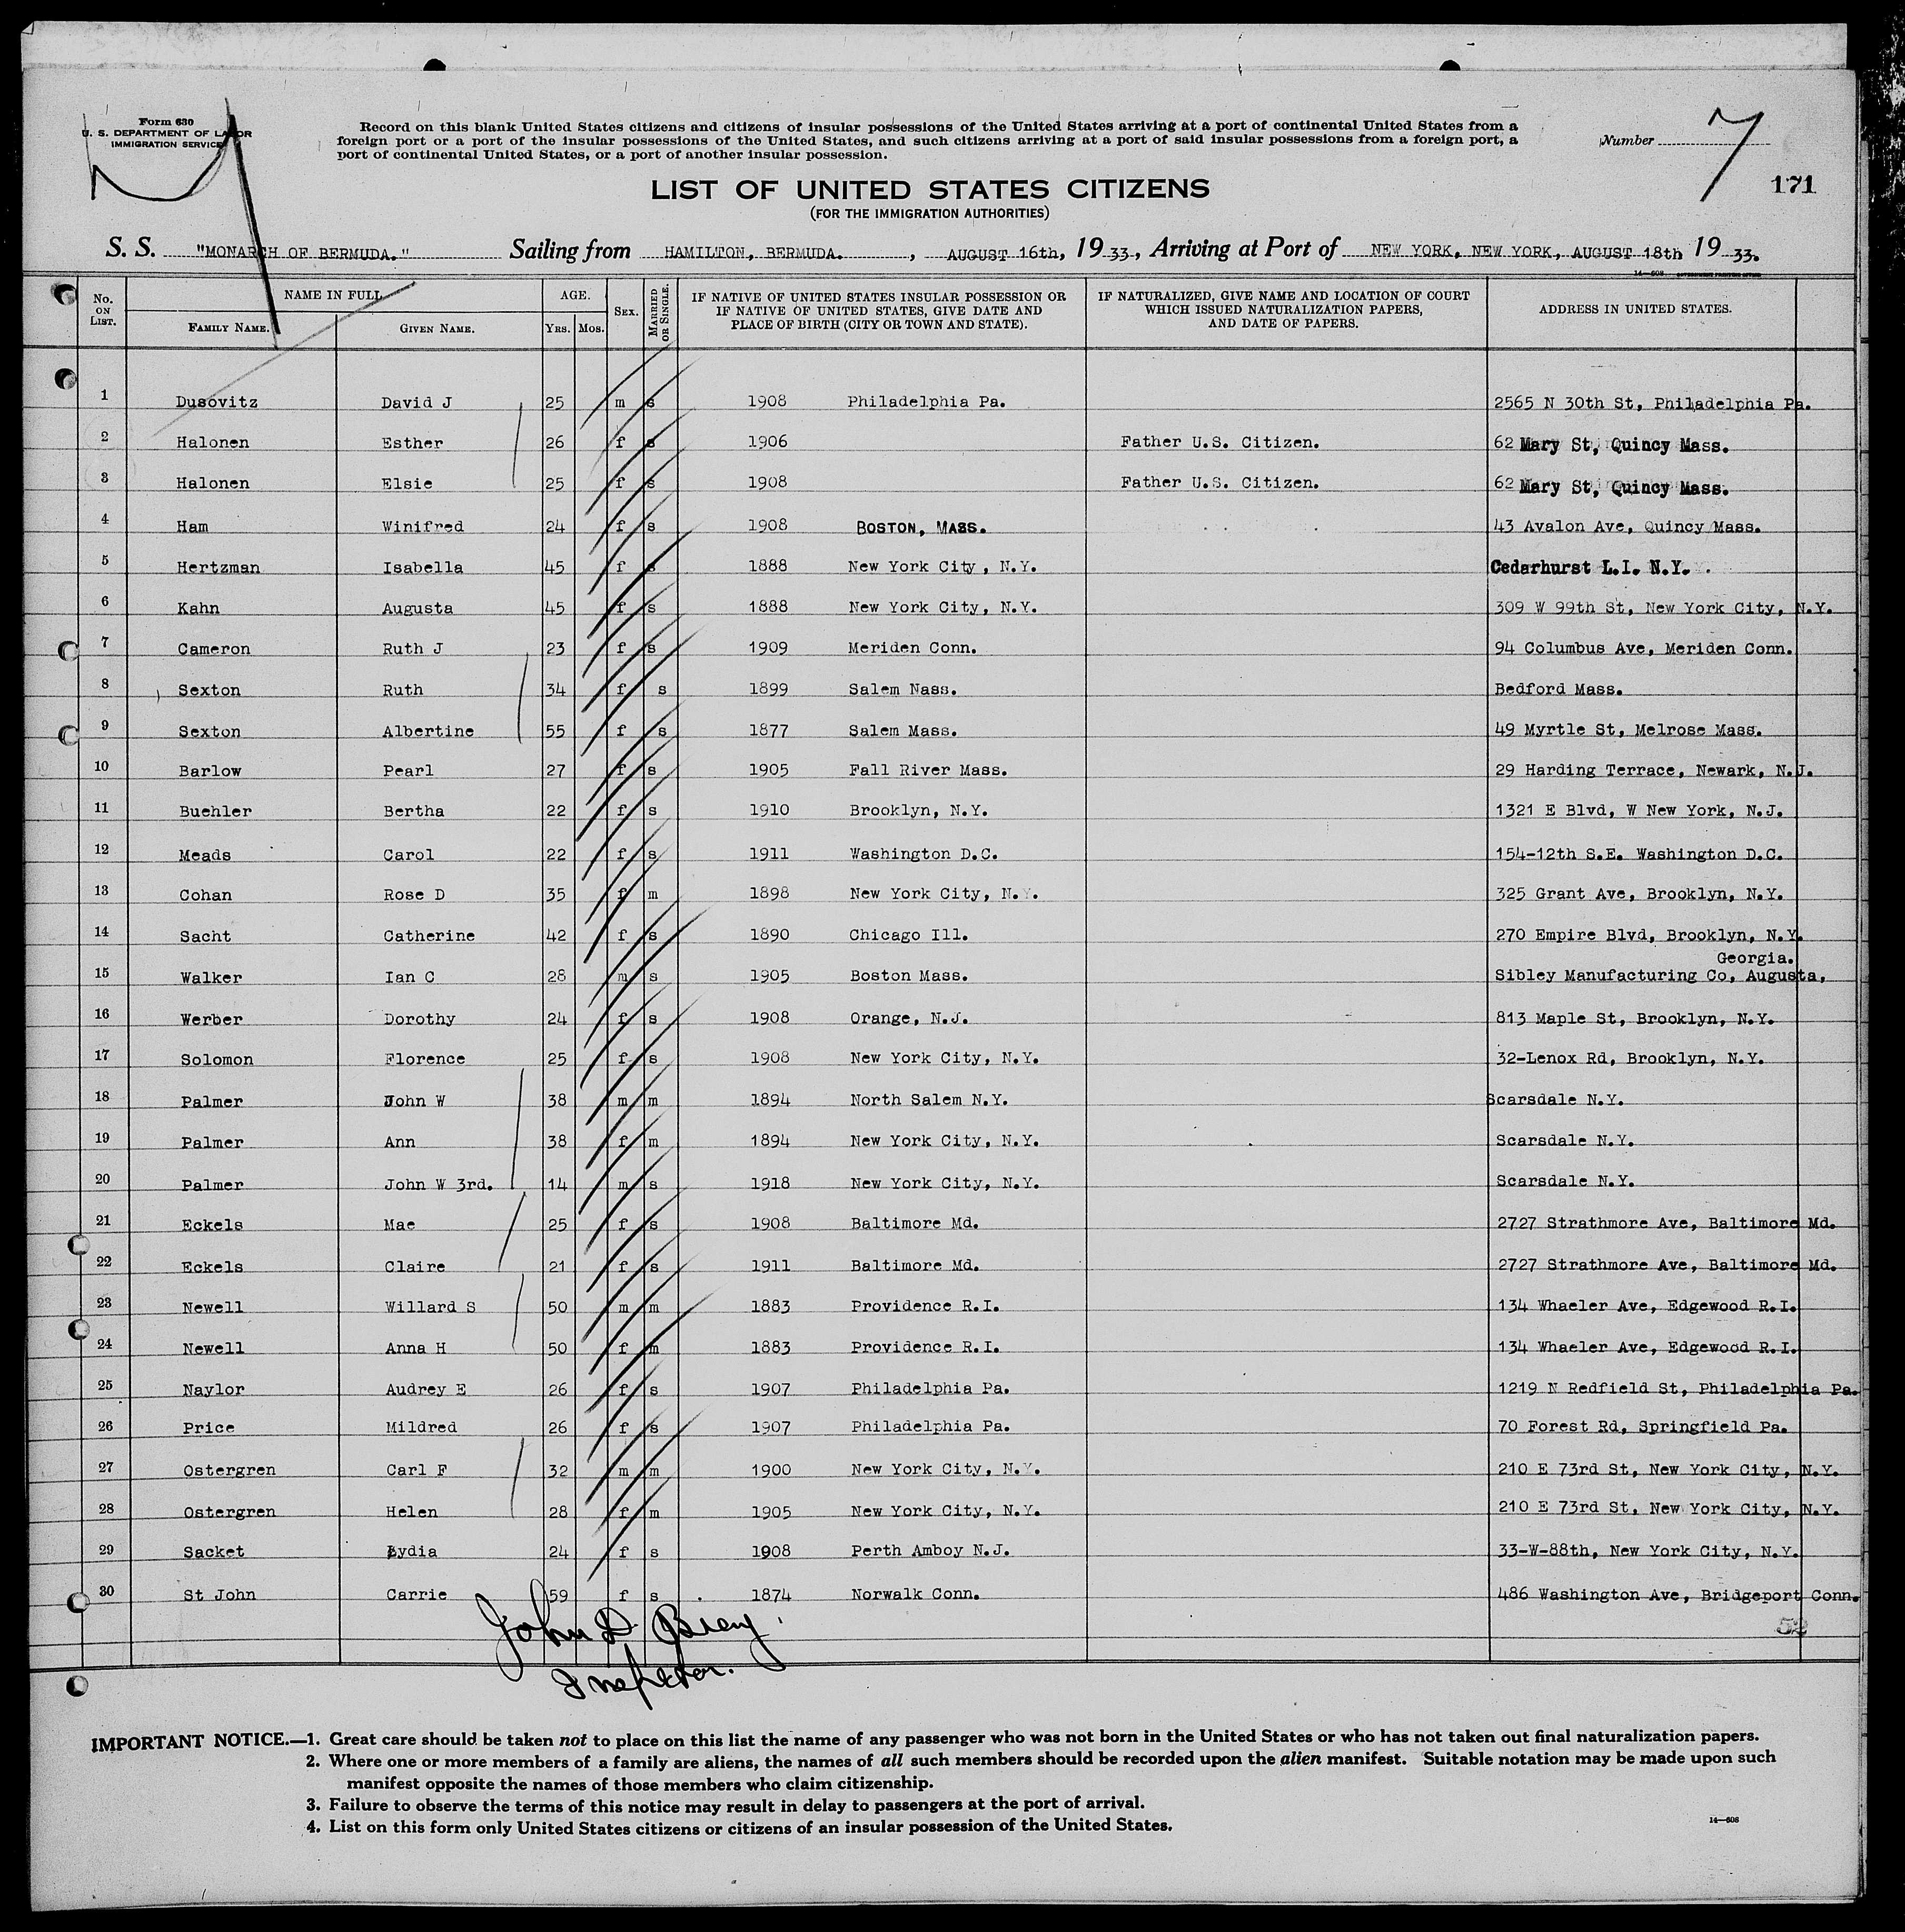 Form 630
U. S. DEPARTMENT OF LABOR
IMMIGRATION SERVICE
Record on this blank United States citizens and citizens of insular possessions of the United States arriving at a port of continental United States from a
foreign port or a port of the insular possessions of the United States, and such citizens arriving at a port of said insular possessions from a foreign port, a
port of continental United States, or a port of another insular possession.
Number 7
171
LIST OF UNITED STATES CITIZENS
(FOR THE IMMIGRATION AUTHORITIES)
S. S. "MONARCH OF BERMUDA." Sailing from HAMILTON, BERMUDA. , AUGUST 16th, 19 33, Arriving at Port of NEW YORK, NEW YORK, AUGUST 18th 19 33.
14—608 GOVERNMENT PRINTING OFFICE
No. ON LIST. NAME IN FULL FAMILY NAME. GIVEN NAME. AGE. YRS. MOS. SEX. MARRIED OR SINGLE. IF NATIVE OF UNITED STATES INSULAR POSSESSION OR IF NATIVE OF UNITED STATES, GIVE DATE AND PLACE OF BIRTH (CITY OR TOWN AND STATE). IF NATURALIZED, GIVE NAME AND LOCATION OF COURT WHICH ISSUED NATURALIZATION PAPERS, AND DATE OF PAPERS. ADDRESS IN UNITED STATES.
1 Dusovitz David J 25 m s 1908 Philadelphia Pa. 2565 N 30th St, Philadelphia Pa.
2 Halonen Esther 26 f s 1906 Father U.S. Citizen. 62 Mary St, Quincy Mass.
3 Halonen Elsie 25 f s 1908 Father U.S. Citizen. 62 Mary St, Quincy Mass.
4 Ham Winifred 24 f s 1908 BOSTON, MASS. 43 Avalon Ave, Quincy Mass.
5 Hertzman Isabella 45 f s 1888 New York City, N.Y. Cedarhurst L.I. N.Y.
6 Kahn Augusta 45 f s 1888 New York City, N.Y. 309 W 99th St, New York City, N.Y.
7 Cameron Ruth J 23 f s 1909 Meriden Conn. 94 Columbus Ave, Meriden Conn.
8 Sexton Ruth 34 f s 1899 Salem Nass. Bedford Mass.
9 Sexton Albertine 55 f s 1877 Salem Mass. 49 Myrtle St, Melrose Mass.
10 Barlow Pearl 27 f s 1905 Fall River Mass. 29 Harding Terrace, Newark, N.J.
11 Buehler Bertha 22 f s 1910 Brooklyn, N.Y. 1321 E Blvd, W New York, N.J.
12 Meads Carol 22 f s 1911 Washington D.C. 154-12th S.E. Washington D.C.
13 Cohan Rose D 35 f m 1898 New York City, N.Y. 325 Grant Ave, Brooklyn, N.Y.
14 Sacht Catherine 42 f s 1890 Chicago Ill. 270 Empire Blvd, Brooklyn, N.Y.
Georgia.
15 Walker Ian C 28 m s 1905 Boston Mass. Sibley Manufacturing Co, Augusta,
16 Werber Dorothy 24 f s 1908 Orange, N.J. 813 Maple St, Brooklyn, N.Y.
17 Solomon Florence 25 f s 1908 New York City, N.Y. 32-Lenox Rd, Brooklyn, N.Y.
18 Palmer John W 38 m m 1894 North Salem N.Y. Scarsdale N.Y.
19 Palmer Ann 38 f m 1894 New York City, N.Y. Scarsdale N.Y.
20 Palmer John W 3rd. 14 m s 1918 New York City, N.Y. Scarsdale N.Y.
21 Eckels Mae 25 f s 1908 Baltimore Md. 2727 Strathmore Ave, Baltimore Md.
22 Eckels Claire 21 f s 1911 Baltimore Md. 2727 Strathmore Ave, Baltimore Md.
23 Newell Willard S 50 m m 1883 Providence R.I. 134 Whaeler Ave, Edgewood R.I.
24 Newell Anna H 50 f m 1883 Providence R.I. 134 Whaeler Ave, Edgewood R.I.
25 Naylor Audrey E 26 f s 1907 Philadelphia Pa. 1219 N Redfield St, Philadelphia Pa.
26 Price Mildred 26 f s 1907 Philadelphia Pa. 70 Forest Rd, Springfield Pa.
27 Ostergren Carl F 32 m m 1900 New York City, N.Y. 210 E 73rd St, New York City, N.Y.
28 Ostergren Helen 28 f m 1905 New York City, N.Y. 210 E 73rd St, New York City, N.Y.
29 Sacket Lydia 24 f s 1908 Perth Amboy N.J. 33-W-88th, New York City, N.Y.
30 St John Carrie 59 f s 1874 Norwalk Conn. 486 Washington Ave, Bridgeport Conn.
52
John D.
Inspector.
IMPORTANT NOTICE.—1. Great care should be taken not to place on this list the name of any passenger who was not born in the United States or who has not taken out final naturalization papers.
2. Where one or more members of a family are aliens, the names of all such members should be recorded upon the alien manifest. Suitable notation may be made upon such
manifest opposite the names of those members who claim citizenship.
3. Failure to observe the terms of this notice may result in delay to passengers at the port of arrival.
4. List on this form only United States citizens or citizens of an insular possession of the United States.
14—608